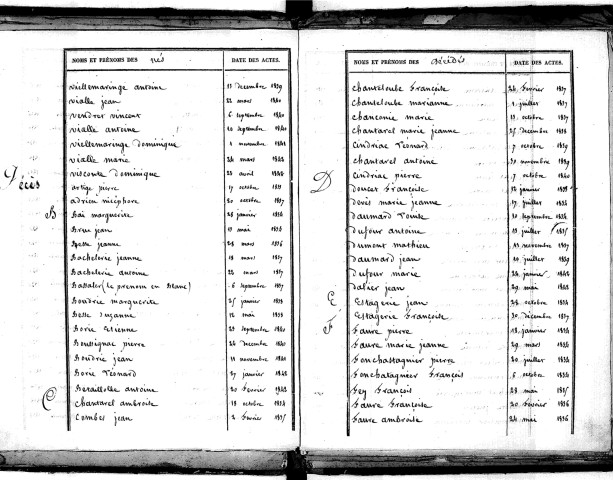 NOMS ET PRÉNOMS DES nés DATE DES ACTES.
viellemaringe antoine 13 décembre 1839
vialle jean 22 mars 1840
vendrer vincent 6 septembre 1840
vialle antoine 10 septembre 1840
viellemaringe dominique 1 novembre 1841
vialle marie 26 mars 1842
visconte dominique 22 avril 1842
Décès
artige pierre 17 octobre
adrien nicéphore 20 octobre 1837
B
Bai marguerite 28 janvier 1834
Brun jean 17 mai 1834
Besse jeanne 28 mars 1836
Bachelerie jeanne 18 mars 1837
Bachelerie antoine 22 mars 1837
Bassaler (le prenom en blanc) 6 septembre 1837
Boudrie marguerite 25 janvier 1838
Besse suzanne 12 mai 1838
Borie Etienne 27 septembre 1840
Boutignac pierre 26 décembre 1840
Boudrie jean 11 novembre 1841
Borie Léonard 27 janvier 1842
Beraillolbe antoine 20 février 1842
C
Chantarel ambroise 18 octobre 1834
Combes jean 2 février 1835
NOMS ET PRÉNOMS DES décédés DATE DES ACTES.
Chanteloube françoise 24 février 1837
Chanteloube marianne 1 juillet 1837
Chancomie marie 13 octobre 1837
Chantarel marie jeanne 25 décembre 1838
Cindriac Léonard 7 octobre 1839
Chantarel antoine 30 novembre 1839
Cindriac pierre 7 octobre 1840
D
Doucet françoise 12 janvier 1833
Devès marie jeanne 17 juillet 1834
Daumard 10 septembre 1834
Dufour antoine 13 juillet 1835
Dumont mathieu 11 novembre 1837
Daumard jean 10 juillet 1839
Dufour marie 24 janvier 1842
Dalier jean 29 mai 1842
E
Estagerie jean 24 octobre 1834
Estagerie françoise 30 décembre 1837
F
faure pierre 18 janvier 1834
faure marie jeanne 29 mars 1834
fonchastagnier pierre 20 juillet 1834
fonchatagnier françois 6 octobre 1834
fey françois 28 mai 1835
faure françoise 20 février 1836
faure ambroise 24 mai 1836